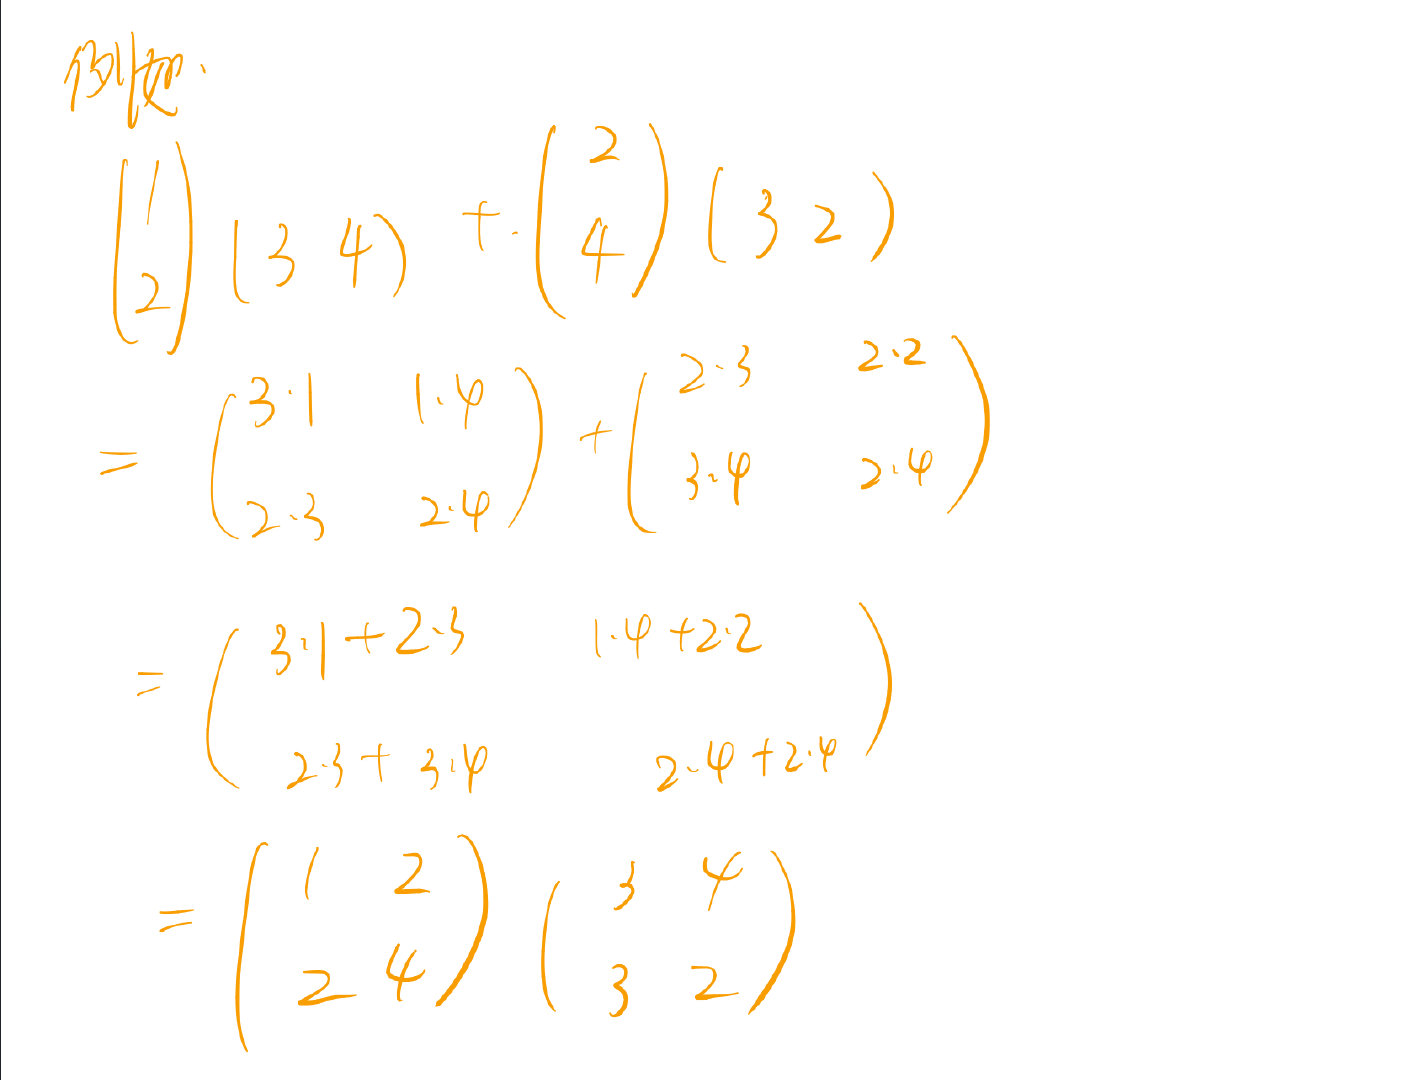 例如.
(1 2) (3 4) + (2 4) (3 2)
= (3·1 1·4
2·3 2·4) + (2·3 2·2
3·4 2·4)
= (3·1+2·3 1·4+2·2
2·3+3·4 2·4+2·4)
= (1 2
2 4) (3 4
3 2)